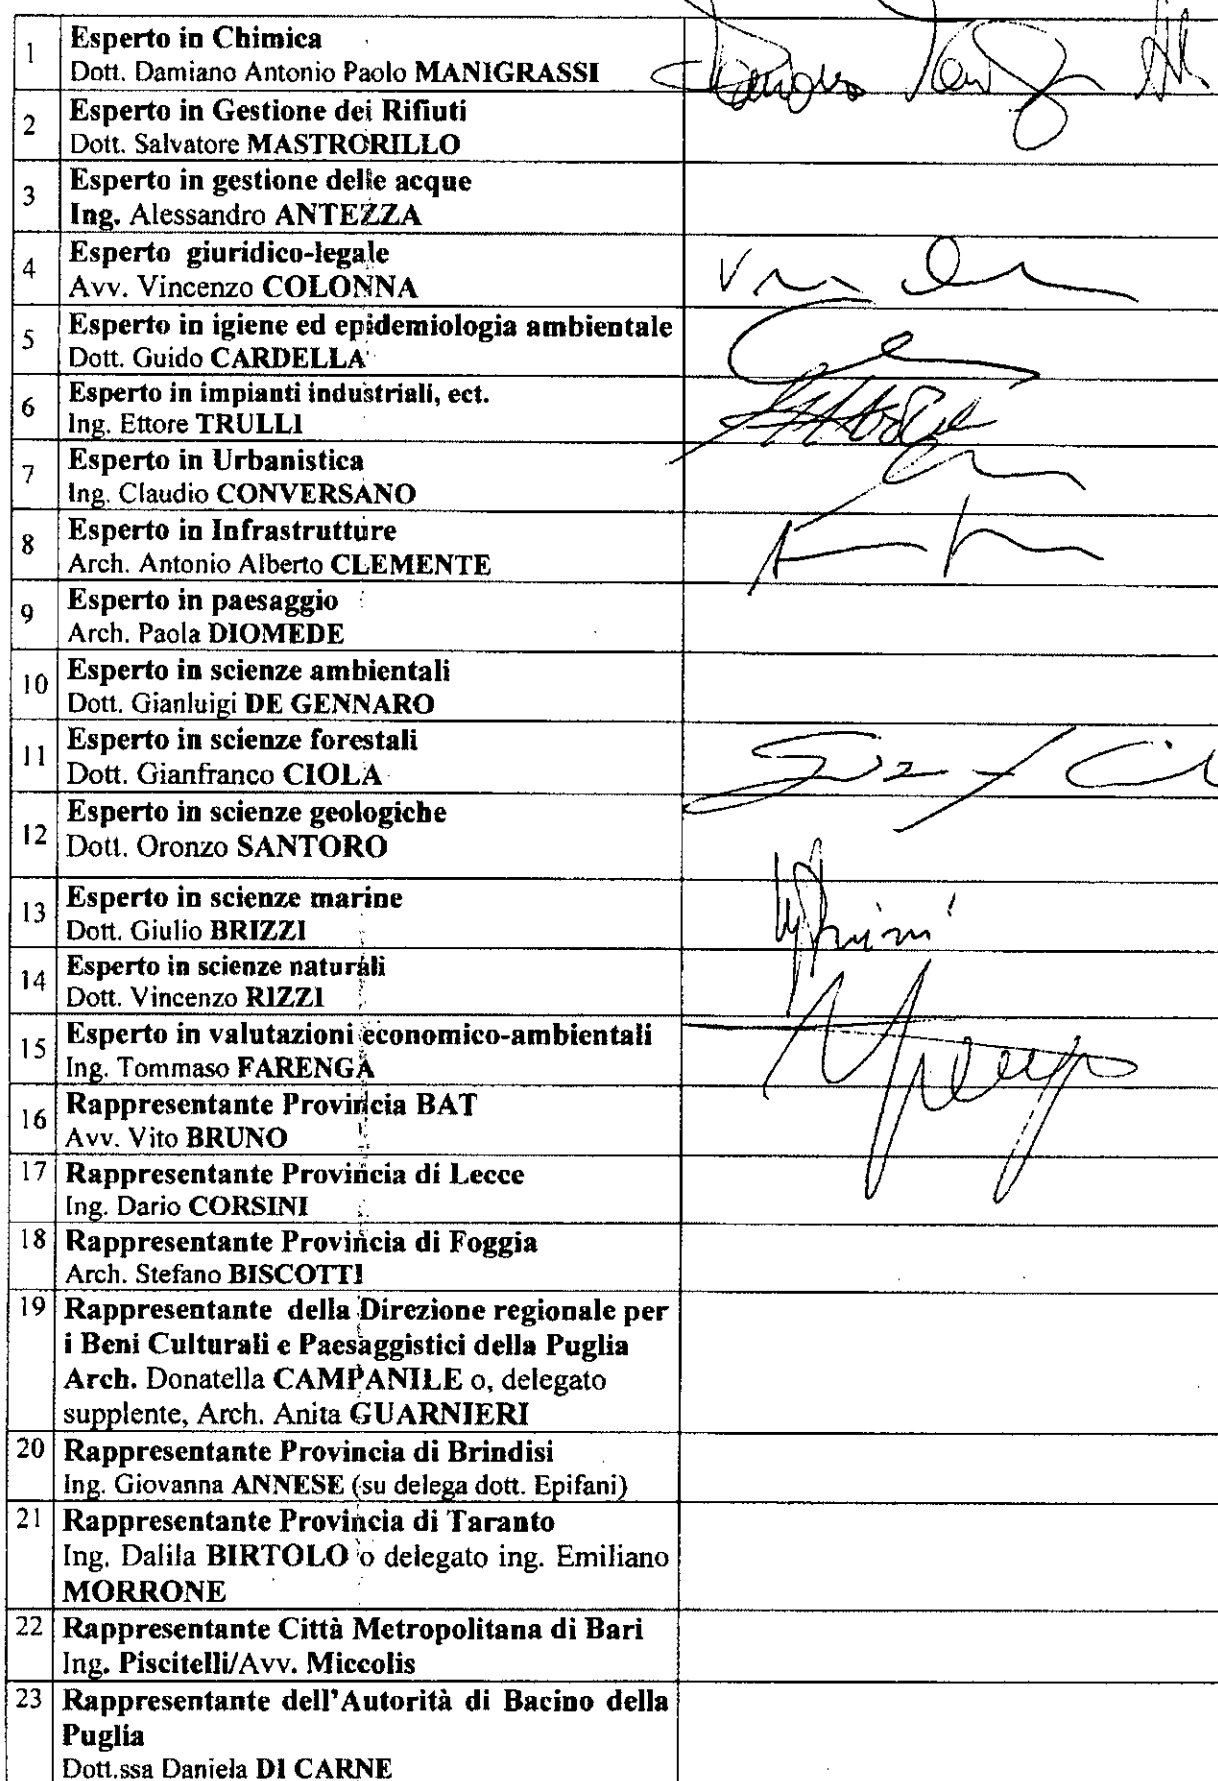 1 Esperto in Chimica
Dott. Damiano Antonio Paolo MANIGRASSI
2 Esperto in Gestione dei Rifiuti
Dott. Salvatore MASTRORILLO
3 Esperto in gestione delle acque
Ing. Alessandro ANTEZZA
4 Esperto giuridico-legale
Avv. Vincenzo COLONNA
5 Esperto in igiene ed epidemiologia ambientale
Dott. Guido CARDELLA
6 Esperto in impianti industriali, ect.
Ing. Ettore TRULLI
7 Esperto in Urbanistica
Ing. Claudio CONVERSANO
8 Esperto in Infrastrutture
Arch. Antonio Alberto CLEMENTE
9 Esperto in paesaggio
Arch. Paola DIOMEDE
10 Esperto in scienze ambientali
Dott. Gianluigi DE GENNARO
11 Esperto in scienze forestali
Dott. Gianfranco CIOLA
12 Esperto in scienze geologiche
Dott. Oronzo SANTORO
13 Esperto in scienze marine
Dott. Giulio BRIZZI
14 Esperto in scienze naturali
Dott. Vincenzo RIZZI
15 Esperto in valutazioni economico-ambientali
Ing. Tommaso FARENGA
16 Rappresentante Provincia BAT
Avv. Vito BRUNO
17 Rappresentante Provincia di Lecce
Ing. Dario CORSINI
18 Rappresentante Provincia di Foggia
Arch. Stefano BISCOTTI
19 Rappresentante della Direzione regionale per
i Beni Culturali e Paesaggistici della Puglia
Arch. Donatella CAMPANILE o, delegato
supplente, Arch. Anita GUARNIERI
20 Rappresentante Provincia di Brindisi
Ing. Giovanna ANNESE (su delega dott. Epifani)
21 Rappresentante Provincia di Taranto
Ing. Dalila BIRTOLO o delegato ing. Emiliano
MORRONE
22 Rappresentante Città Metropolitana di Bari
Ing. Piscitelli/Avv. Miccolis
23 Rappresentante dell'Autorità di Bacino della
Puglia
Dott.ssa Daniela DI CARNE